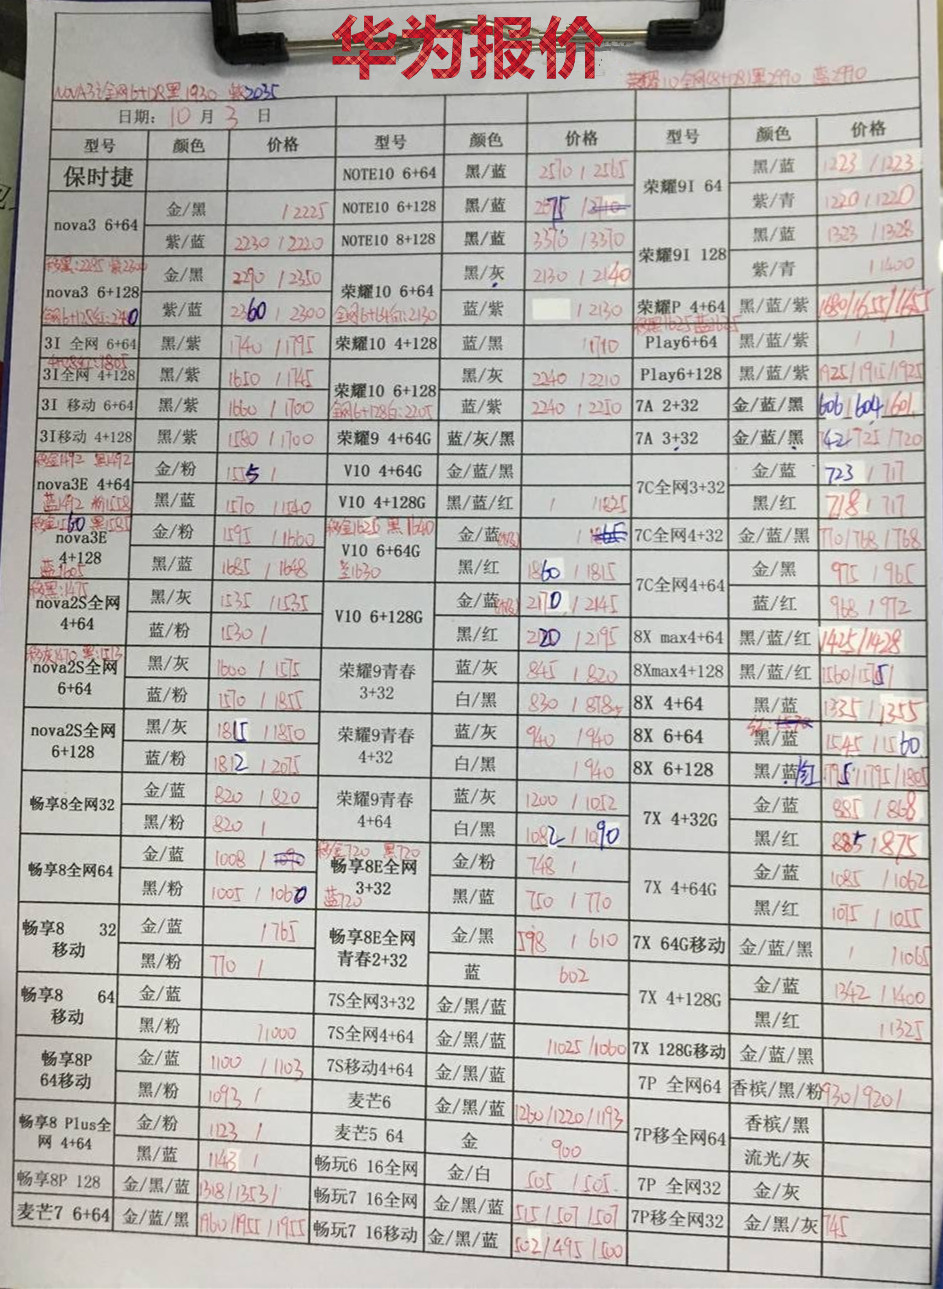 华为报价
NOVA3i全网6+128黑1930 紫2035
荣耀10全网(8+128)黑2990 蓝2990
日期: 10 月 3 日
型号 颜色 价格 型号 颜色 价格 型号 颜色 价格
保时捷
nova3 6+64 金/黑 /2225
紫/蓝 2230/2220
移黑:2285 紫2300
nova3 6+128 金/黑 2290/2350
紫/蓝 2260/2300
3I 全网 6+64 黑/紫 1740/1795
3I全网 4+128 黑/紫 1650/1745
3I 移动 6+64 黑/紫 1660/1700
3I移动 4+128 黑/紫 1580/1700
移金1492 黑1492
nova3E 4+64 金/粉 1555/
蓝1492 粉1558
黑/蓝 1570/1540
移金1560 黑1585
nova3E 4+128 金/粉 1595/1660
蓝1605
黑/蓝 1685/1648
移黑:1475
nova2S全网 4+64 黑/灰 1535/1535
蓝/粉 1530/
移灰1470 黑:1513
nova2S全网 6+64 黑/灰 1600/1575
蓝/粉 1570/1855
nova2S全网 6+128 黑/灰 1815/1850
蓝/粉 1812/2075
畅享8全网32 金/蓝 820/820
黑/粉 820/
畅享8全网64 金/蓝 1008/
黑/粉 1005/1060
畅享8 32 移动 金/蓝 /765
黑/粉 770/
畅享8 64 移动 金/蓝
黑/粉 /1000
畅享8P 64移动 金/蓝 1100/1103
黑/粉 1093/
畅享8 Plus全网 4+64 金/粉 1123/
黑/蓝 1143/
畅享8P 128 金/黑/蓝 1318/1353/
麦芒7 6+64 金/蓝/黑 1960/1955/1955
NOTE10 6+64 黑/蓝 2570/2565
NOTE10 6+128 黑/蓝 2575/2710
NOTE10 8+128 黑/蓝 3370/3370
荣耀10 6+64 黑/灰 2130/2140
全网6+64G:2130
蓝/紫 /2130
荣耀10 4+128 蓝/黑 1710
荣耀10 6+128 黑/灰 2240/2210
全网6+128G:2205
蓝/紫 2240/2250
荣耀9 4+64G 蓝/灰/黑
V10 4+64G 金/蓝/黑
V10 4+128G 黑/蓝/红 / /1825
移金1625 黑1640
V10 6+64G 金/蓝
兰1630
黑/红 1860/1815
V10 6+128G 金/蓝 2170/2145
黑/红 2220/2195
荣耀9青春 3+32 蓝/灰 845/820
白/黑 830/
荣耀9青春 4+32 蓝/灰 940/940
白/黑 /940
荣耀9青春 4+64 蓝/灰 1200/1052
白/黑 1082/1090
移金720 黑720
畅享8E全网 3+32 金/粉 748/
蓝720
黑/蓝 750/770
畅享8E全网 青春2+32 金/黑 598/610
蓝 602
7S全网3+32 金/黑/蓝
7S全网4+64 金/黑/蓝 /1025/1060
7S移动4+64 金/黑/蓝
麦芒6 金/黑/蓝 1260/1220/1193
麦芒5 64 金 900
畅玩6 16全网 金/白 505/505
畅玩7 16全网 金/黑/蓝 515/507/507
畅玩7 16移动 金/黑/蓝 502/495/500
荣耀9I 64 黑/蓝 1223/1223
紫/青 1220/1220
荣耀9I 128 黑/蓝 1323/1328
紫/青 /1400
荣耀P 4+64 黑/蓝/紫 1680/1655/1655
移黑1625 蓝1625
Play6+64 黑/蓝/紫 / /
Play6+128 黑/蓝/紫 1925/1915/1925
7A 2+32 金/蓝/黑 606/604/601
7A 3+32 金/蓝/黑 742/725/720
7C全网3+32 金/蓝 723/717
黑/红 718/717
7C全网4+32 金/蓝/黑 770/768/768
7C全网4+64 金/黑 975/965
蓝/红 968/972
8X max4+64 黑/蓝/红 1425/1428
8Xmax4+128 黑/蓝/红 1560/1575/
8X 4+64 黑/蓝 1335/1355
8X 6+64 黑/蓝 1545/1560
8X 6+128 黑/蓝/红 1795/1795/1805
7X 4+32G 金/蓝 885/868
黑/红 885/875
7X 4+64G 金/蓝 1085/1062
黑/红 1075/1055
7X 64G移动 金/蓝/黑 / /1065
7X 4+128G 金/蓝 1342/1400
黑/红 /1325
7X 128G移动 金/蓝/黑
7P 全网64 香槟/黑/粉 930/920/
7P移全网64 香槟/黑
流光/灰
7P 全网32 金/灰
7P移全网32 金/黑/灰 745